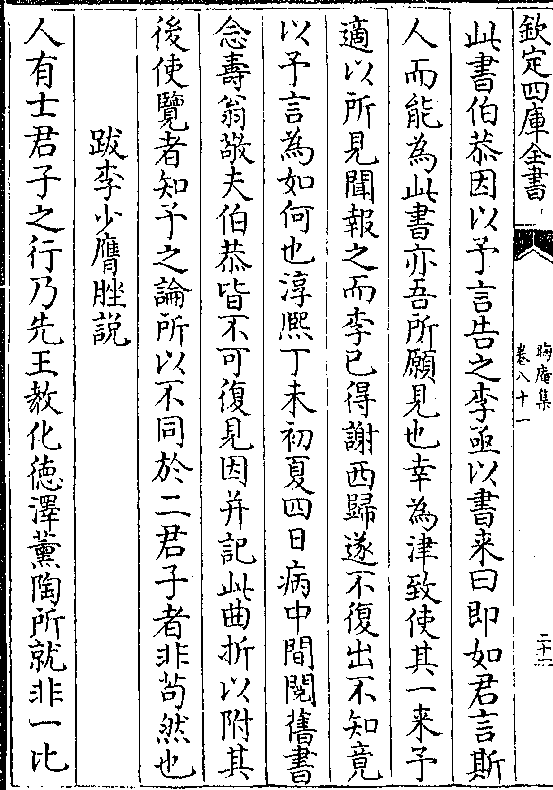 欽定四庫全書
晦庵集
卷八十一
二十二
此書伯恭因以予言告之李亟以書来曰即如君言斯
人而能為此書亦吾所願見也幸為津致使其一来予
適以所見聞報之而李已得謝西歸遂不復出不知竟
以予言為如何也淳熈丁未初夏四日病中間閱舊書
念壽翁敬夫伯恭皆不可復見因并記此曲折以附其
後使覽者知予之論所以不同於二君子者非苟然也
跋李少膺脞説
人有士君子之行乃先王教化徳澤薰陶所就非一比